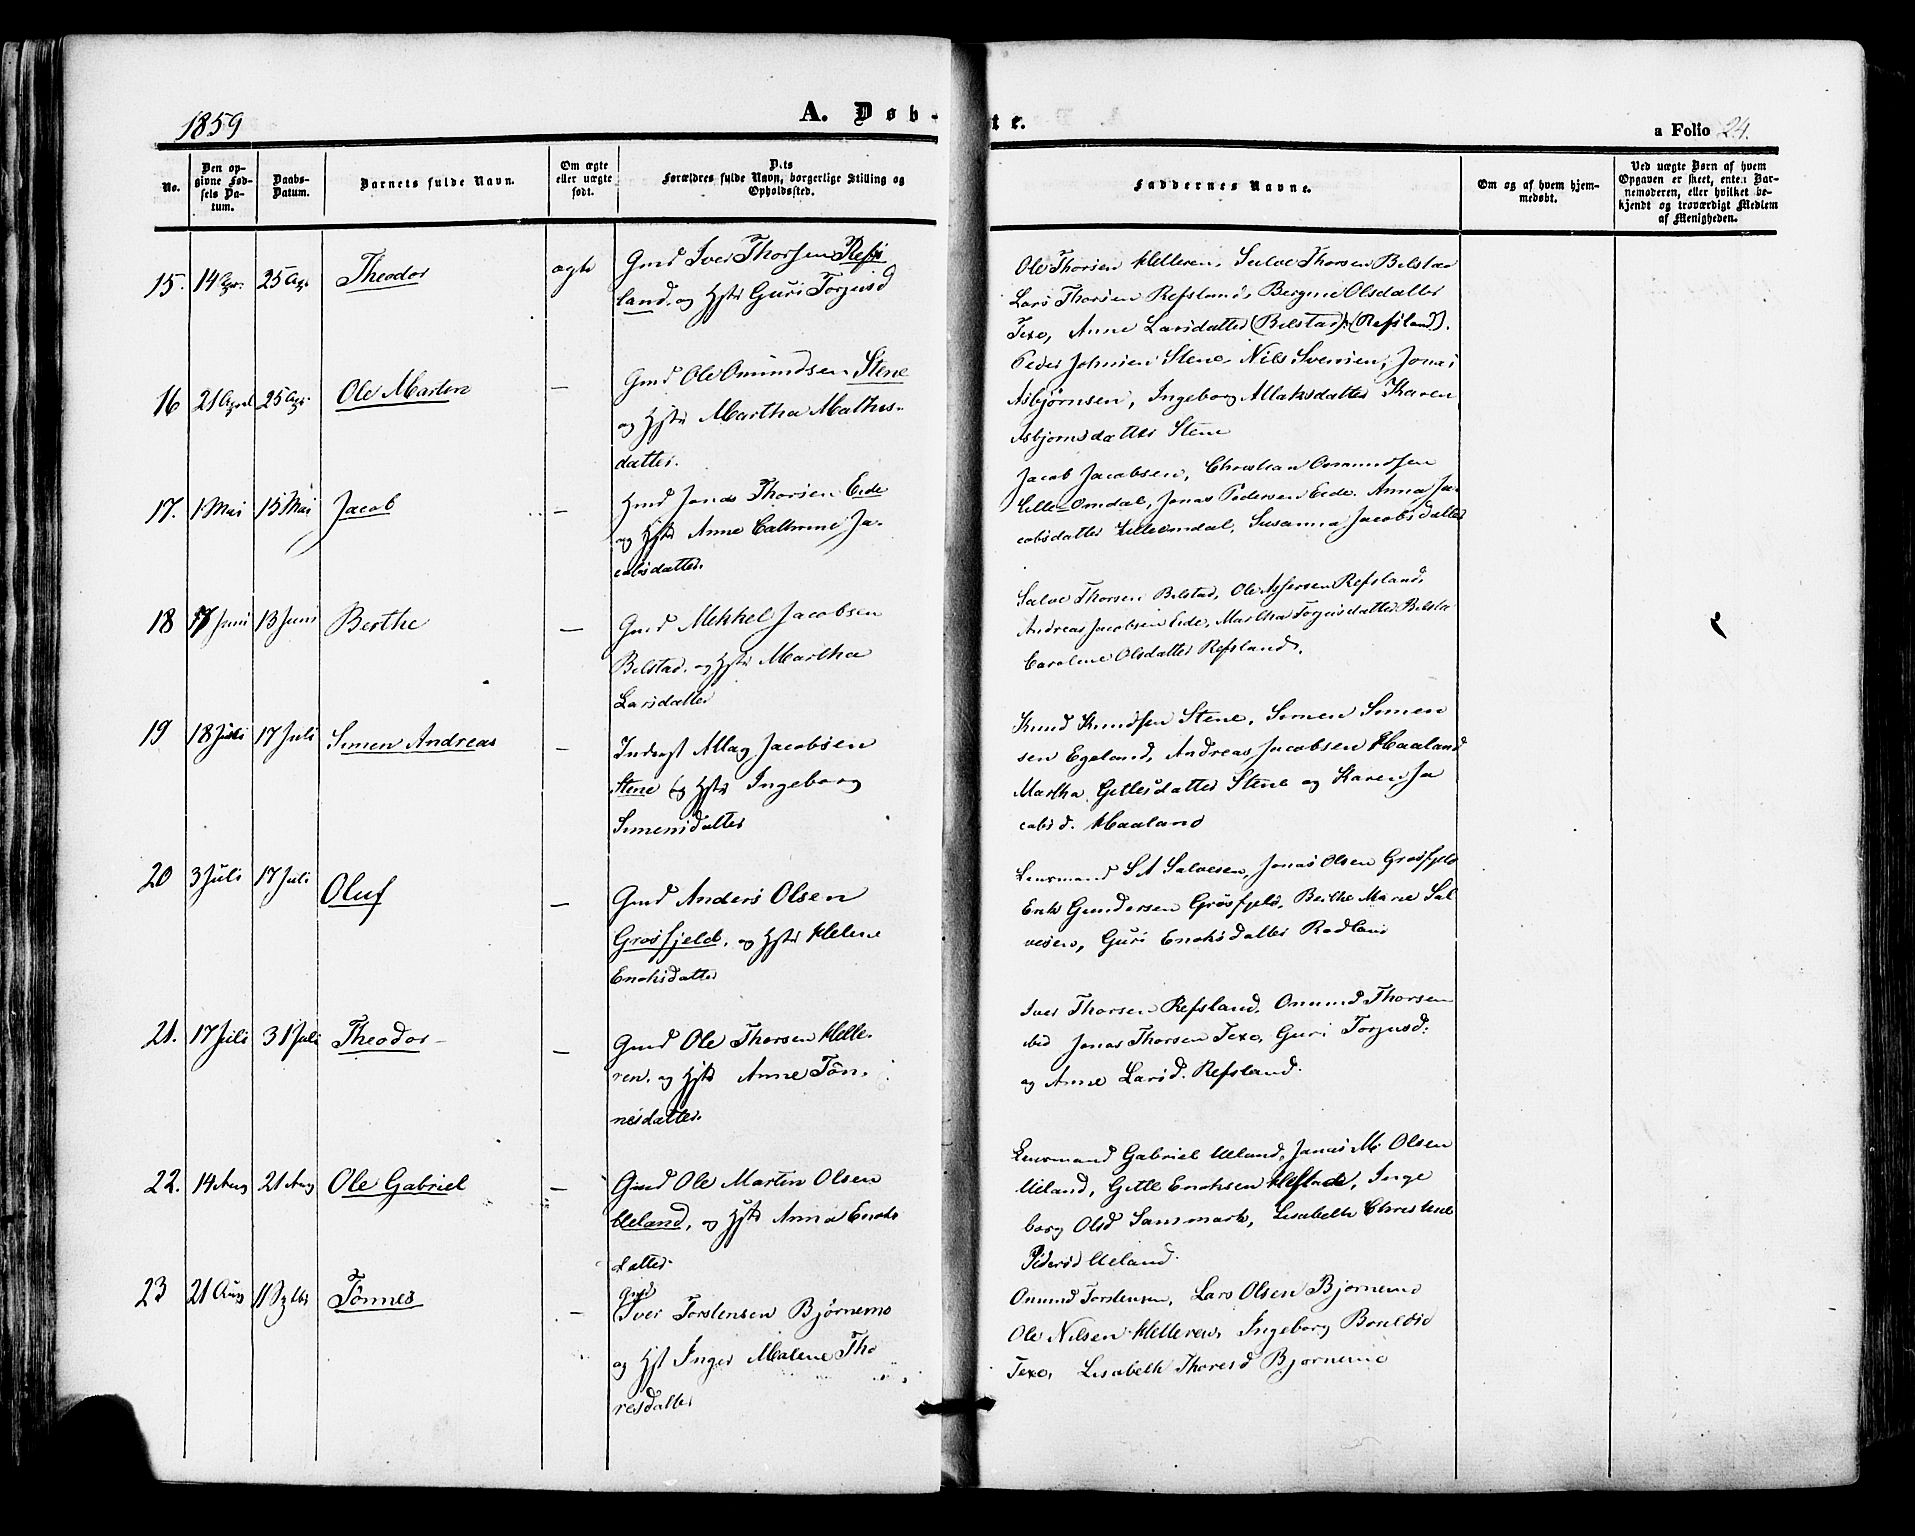 1859
A. Døb-
te.
a Folio 24.
No.
Den op-
givne Fød-
sels Da-
tum.
Daabs-
Datum.
Barnets fulde Navn.
Om ægte
eller uægte
født.
Dets
Forældres fulde Navn, borgerlige Stilling og
Opholdssted.
Faddernes Navne.
Om og af hvem hjem-
medøbt.
Ved uægte Børn af hvem
Opgaven er skeet, enten Bar-
nemoderen, eller hvilket be-
kjendt og troværdigt Medlem
af Menigheden.
15. 14 Apr. 25 Apr Theodor ægte
Gmd Iver Thorsen Refs
land. og Hstr Guri Torgusd
Ole Thorsen Helleren, Salve Thorsen Bilstad
Lars Thorsen Refsland, Bergine Olsdatter
Texe, Anne Larsdatter (Bilstad) (Refsland).
16 21 April 25 Apr Ole Martin —
Gmd Ole Omundsen Stene
og Hstr Martha Mathis-
datter.
Peder Johnsen Stene Nils Svensen, Jonas
Asbjørnsen, Ingeborg Allaksdatter Karen
Asbjornsdatter Stene
17. 1 Mai 15 Mai Jacob —
Hmd Jonas Thorsen Eide
og Hstr Anne Cathrine Ja-
cobsdatter.
Jacob Jacobsen, Christian Omundsen
Lille-Omdal, Jonas Pedersen Eide. Anna Ja-
cobsdatter Lilleomdal, Susanna Jacobsdatter
18 7 Juni 13 Juni Berthe —
Gmd Mekkel Jacobsen
Bilstad. og Hstr Martha
Larsdatter
Salve Thorsen Bilstad, Ole Assersen Refsland,
Andreas Jacobsen Eide, Martha Torgusdatter Bilsta
Caroline Olsdatter Refsland.
19 18 Juli 17 Juli Simen Andreas —
Inderst Allag Jacobsen
Stene og Hstr Ingeborg
Simensdatter
Knud Knudsen Stene, Simen Simen
sen Egeland, Andreas Jacobsen Haaland
Martha Gittesdatter Stene og Karen Ja
cobsd. Haaland
20 3 Juli 17 Juli Oluf —
Gmd Anders Olsen
Grøsfjeld, og Hstr Helene
Enoksdatter
Lensmand S A Salvesen, Jonas Olsen Grøsfjeld
Erik Gundersen Grøsfjeld, Berthe Marie Sal
vesen, Guri Enoksdatter Rodland
21. 17 Juli 31 Juli Theodor —
Gmd Ole Thorsen Helle-
ren. og Hstr Anne Tøn-
nesdatter.
Iver Thorsen Refsland, Omund Thorsen
ibid Jonas Thorsen Texe, Guri Torgusd:
og Anne Larsd. Refsland.
22. 14 Aug 21 Aug Ole Gabriel —
Gmd Ole Martin Olsen
Ueland, og Hstr Anna Enoks
datter
Lensmand Gabriel Ueland, Jonas M. Olsen
Ueland, Gitle Enoksen Hestad, Inge
borg Olsd Sanmark, Lisabeth Christine
Pedersd Ueland.
23 21 Aug 11 Sptbr Tönnes —
Gmd
Iver Torstensen Bjørnemo
og Hst Inger Malene Tho
resdatter
Omund Torstensen, Lars Olsen Bjørnemo
Ole Nilsen Helleren, Ingeborg
Texe, Lisabeth Thoresd Bjørnemo